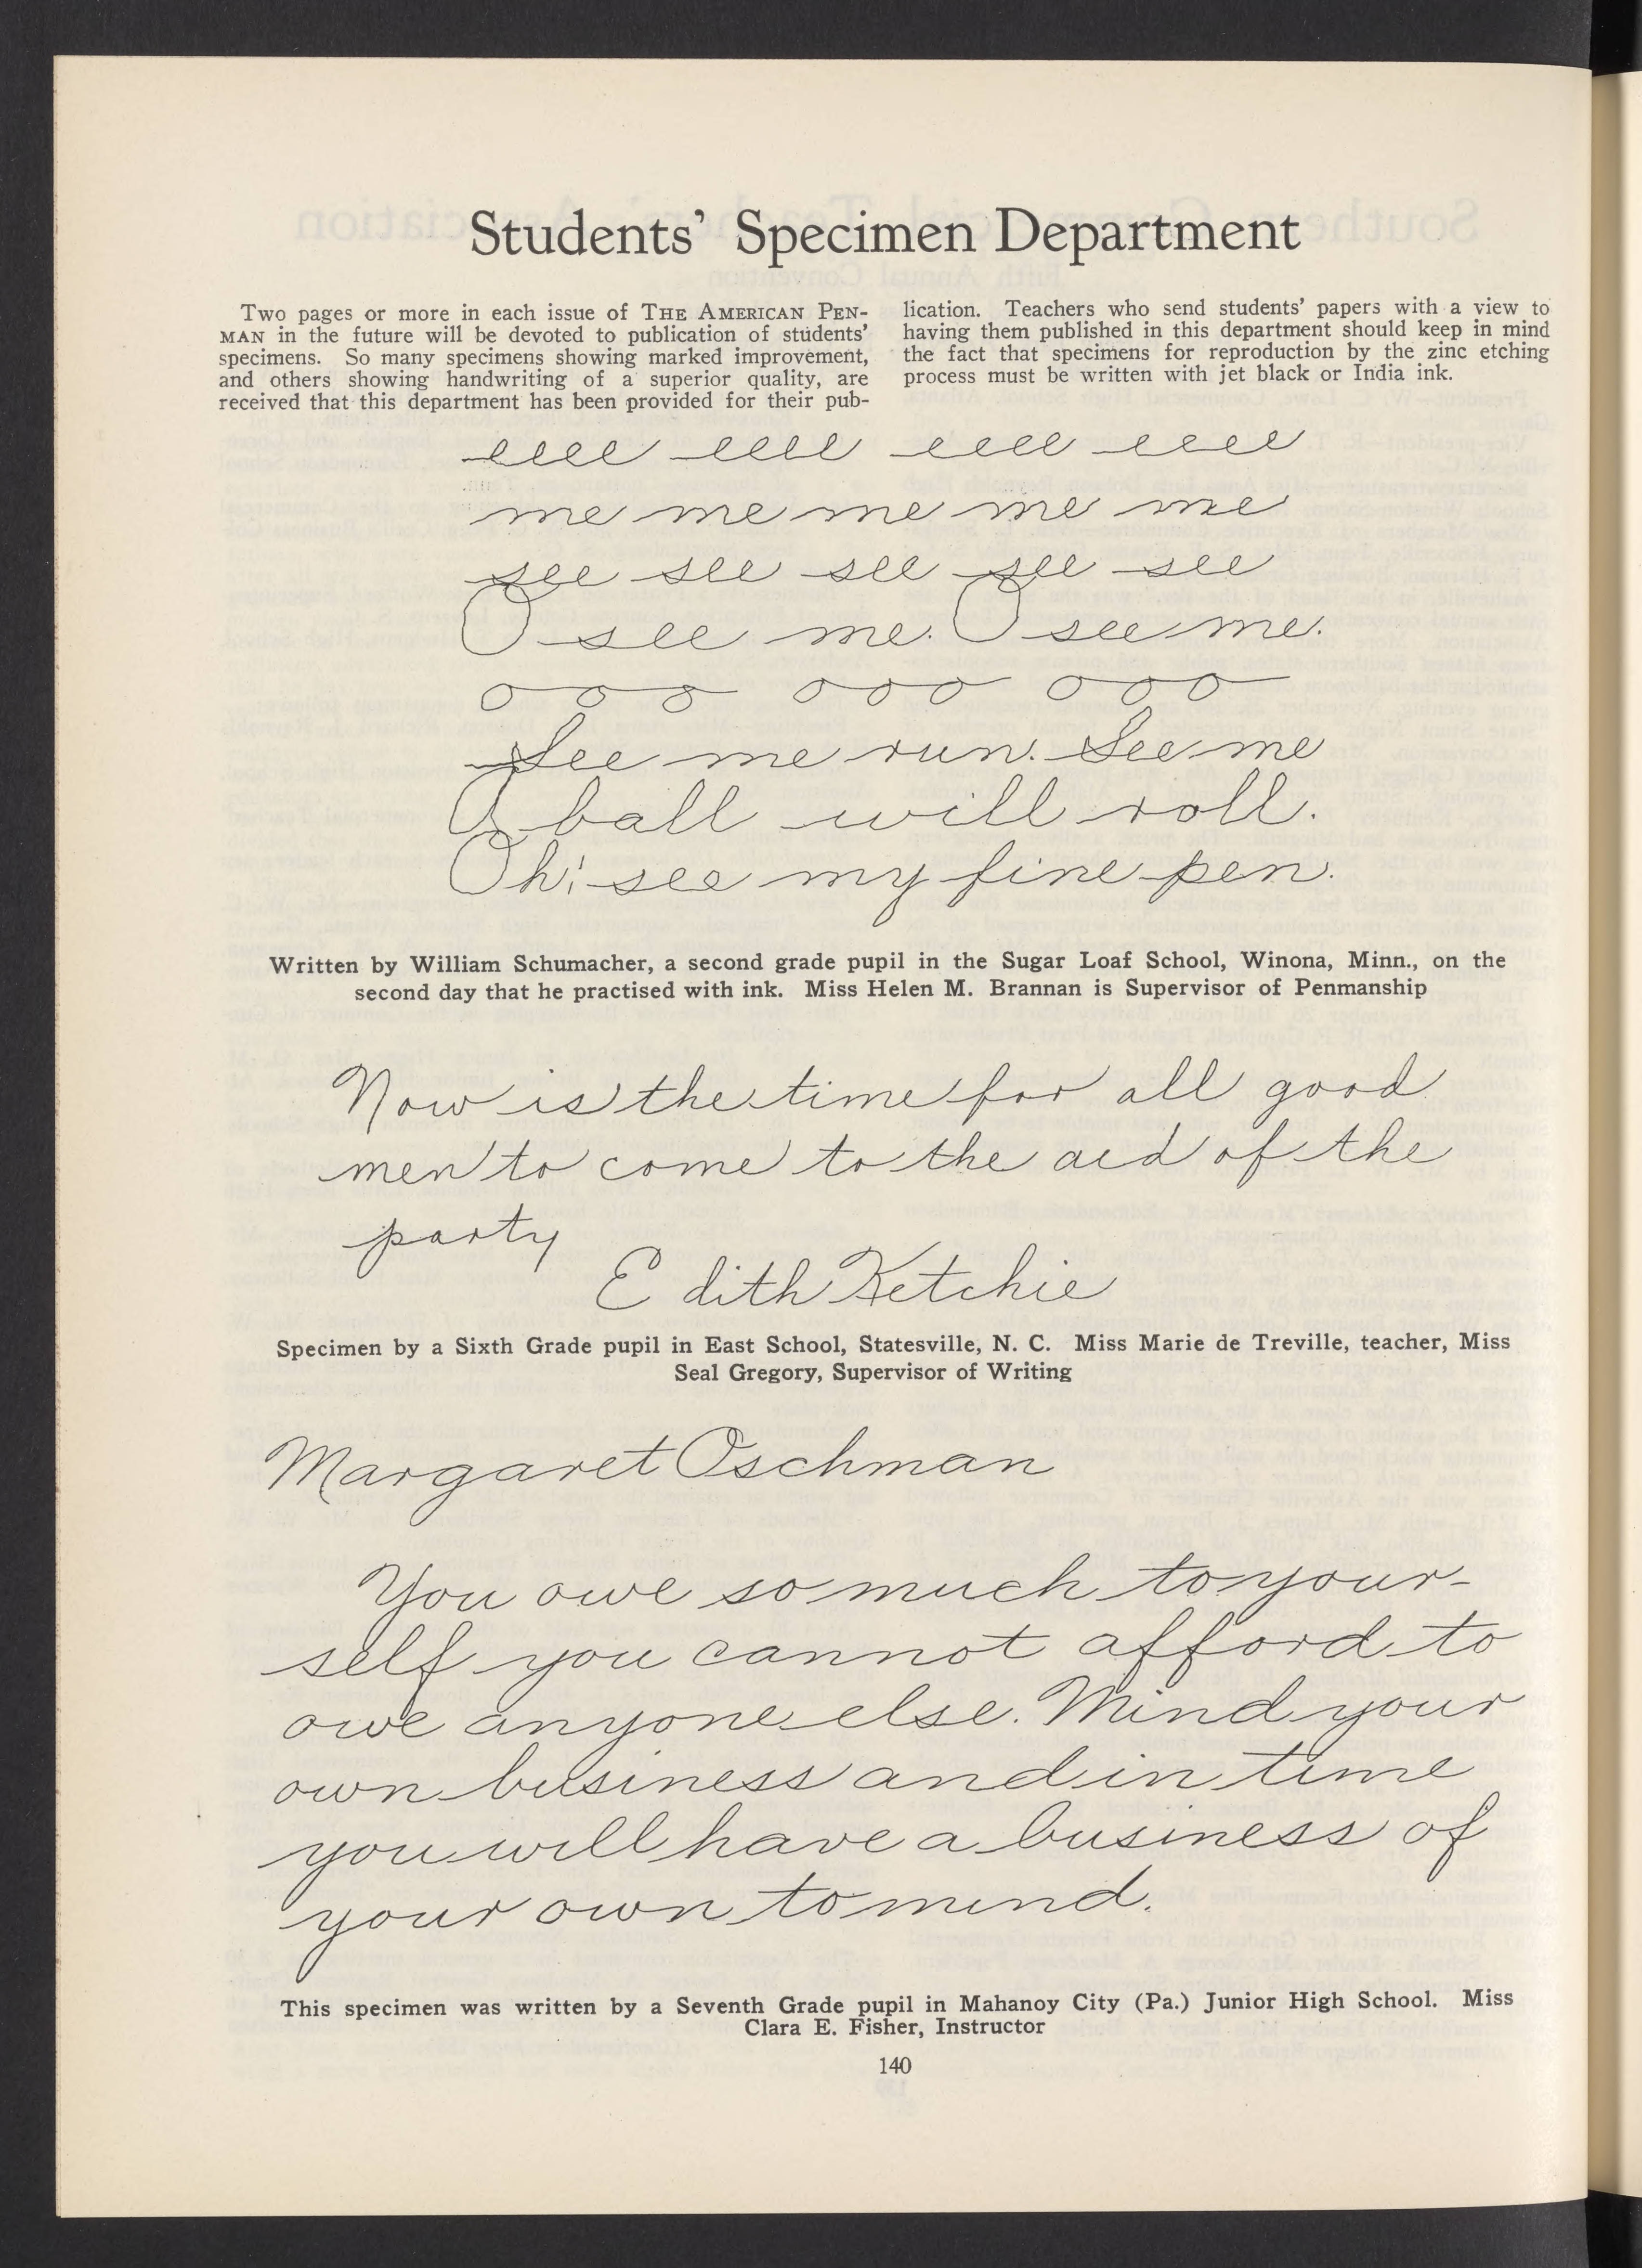 Students' Specimen Department
Two pages or more in each issue of THE AMERICAN PEN-
MAN in the future will be devoted to publication of students'
specimens. So many specimens showing marked improvement,
and others showing handwriting of a superior quality, are
received that this department has been provided for their pub-
lication. Teachers who send students' papers with a view to
having them published in this department should keep in mind
the fact that specimens for reproduction by the zinc etching
process must be written with jet black or India ink.
eeee eeee eeee eeee
me me me me me
see see see see see
O see me. O see me.
ooo ooo ooo
See me run. See me
A ball will roll.
Oh! see my fine pen.
Written by William Schumacher, a second grade pupil in the Sugar Loaf School, Winona, Minn., on the
second day that he practised with ink. Miss Helen M. Brannan is Supervisor of Penmanship
Now is the time for all good
men to come to the aid of the
party
Edith Ketchie
Specimen by a Sixth Grade pupil in East School, Statesville, N. C. Miss Marie de Treville, teacher, Miss
Seal Gregory, Supervisor of Writing
Margaret Oschman
You owe so much to your-
self you cannot afford to
owe anyone else. Mind your
own business and in time
you will have a business of
your own to mind.
This specimen was written by a Seventh Grade pupil in Mahanoy City (Pa.) Junior High School. Miss
Clara E. Fisher, Instructor
140